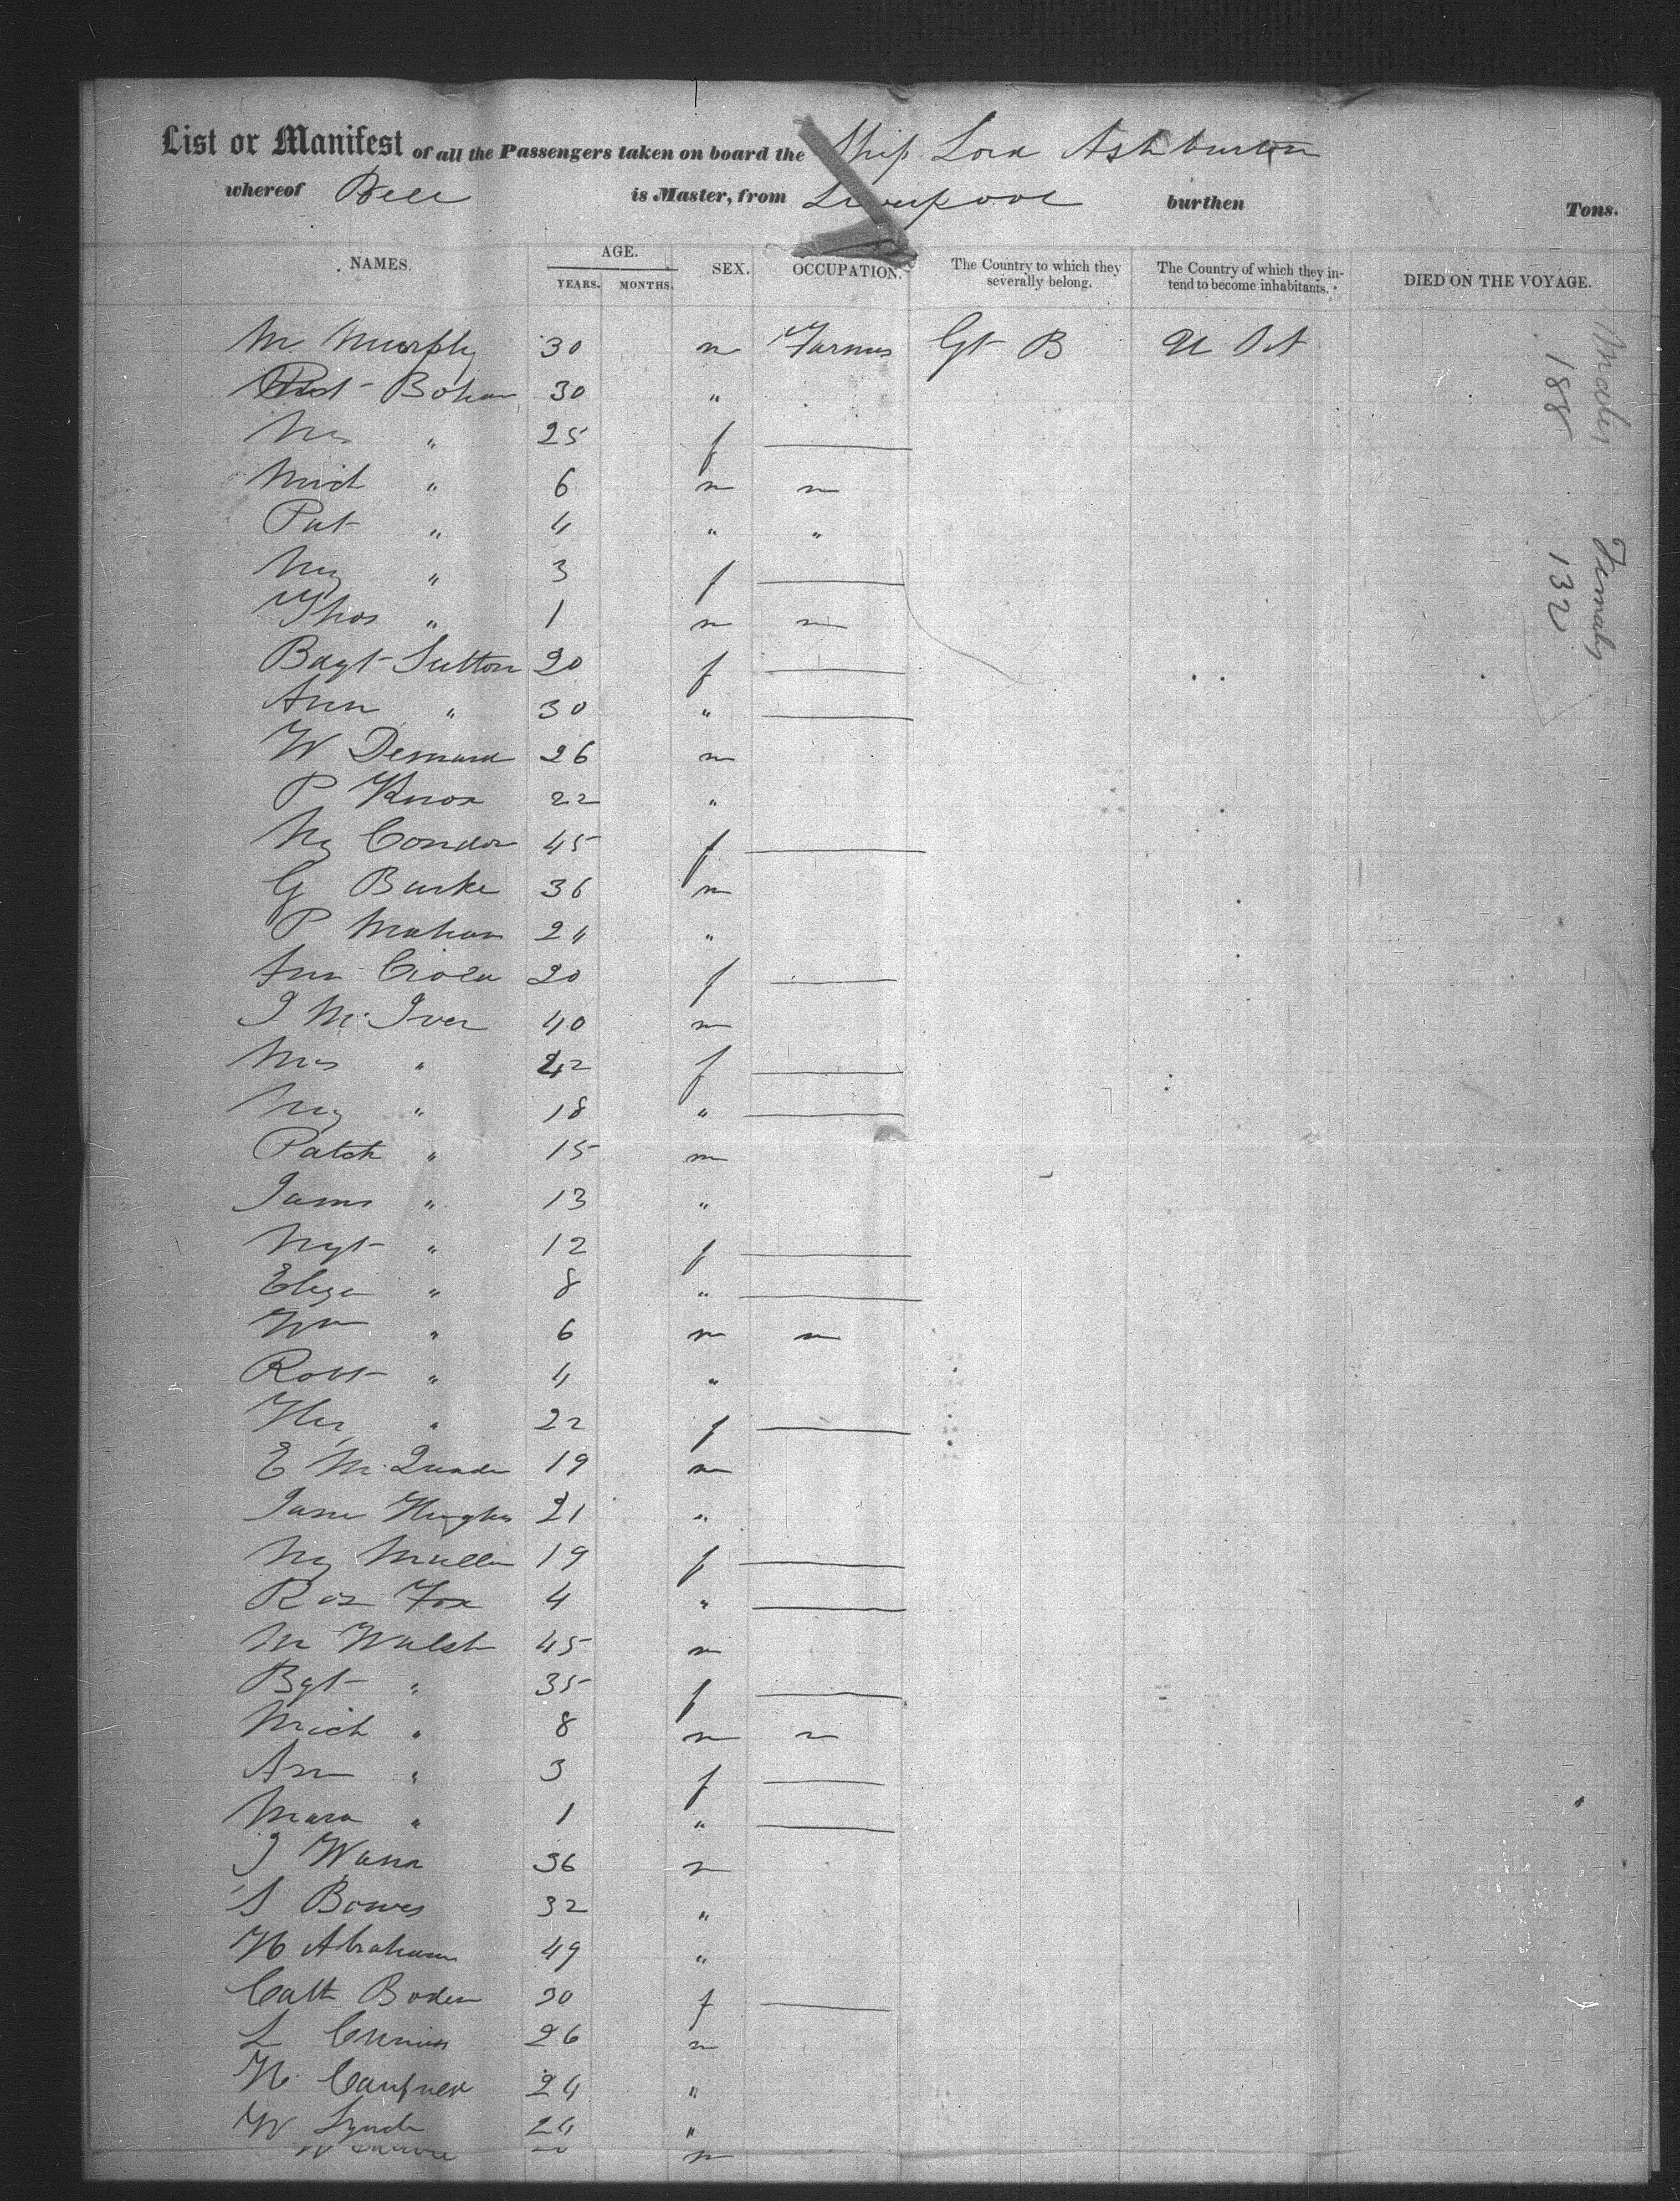 List or Manifest of all the Passengers taken on board the Ship Lord Ashburton
whereof Bell is Master, from Liverpool burthen Tons.
NAMES. AGE. YEARS. MONTHS. SEX. OCCUPATION. The Country to which they severally belong. The Country of which they intend to become inhabitants. DIED ON THE VOYAGE.
M. Murphy 30 m Farmer Gt B U St
Bohan 30 "
Mrs " 25 f
Mich " 6 m
Pat " 4 " "
My " 3 f
Thos " 1 m
Bdgt Sutton 20 f
Ann " 30 "
W 26 m
P Knox 22 "
My Condon 45 f
G Burke 36 m
P Mahan 24 "
Ann 20 f
J McIver 40 m
Mrs " 42 f
My " 18 "
Patck " 15 m
James " 13 "
Mgt " 12 f
Eliza " 8 "
Wm " 6 m
Robt " 4 "
" 22 f
E McQuade 19 m
Jane Hughes 21 "
My Mullen 19 f
Ros Fox 4 "
M Walsh 45 m
Bgt " 35 f
Mich " 8 m
Ann " 3 f
" 1 "
J 36 m
S Bowes 32 "
H Abraham 49 "
Cath Boden 30 f
L 26 m
24 "
W Lynch 24 "
m
Males 188
Females 132